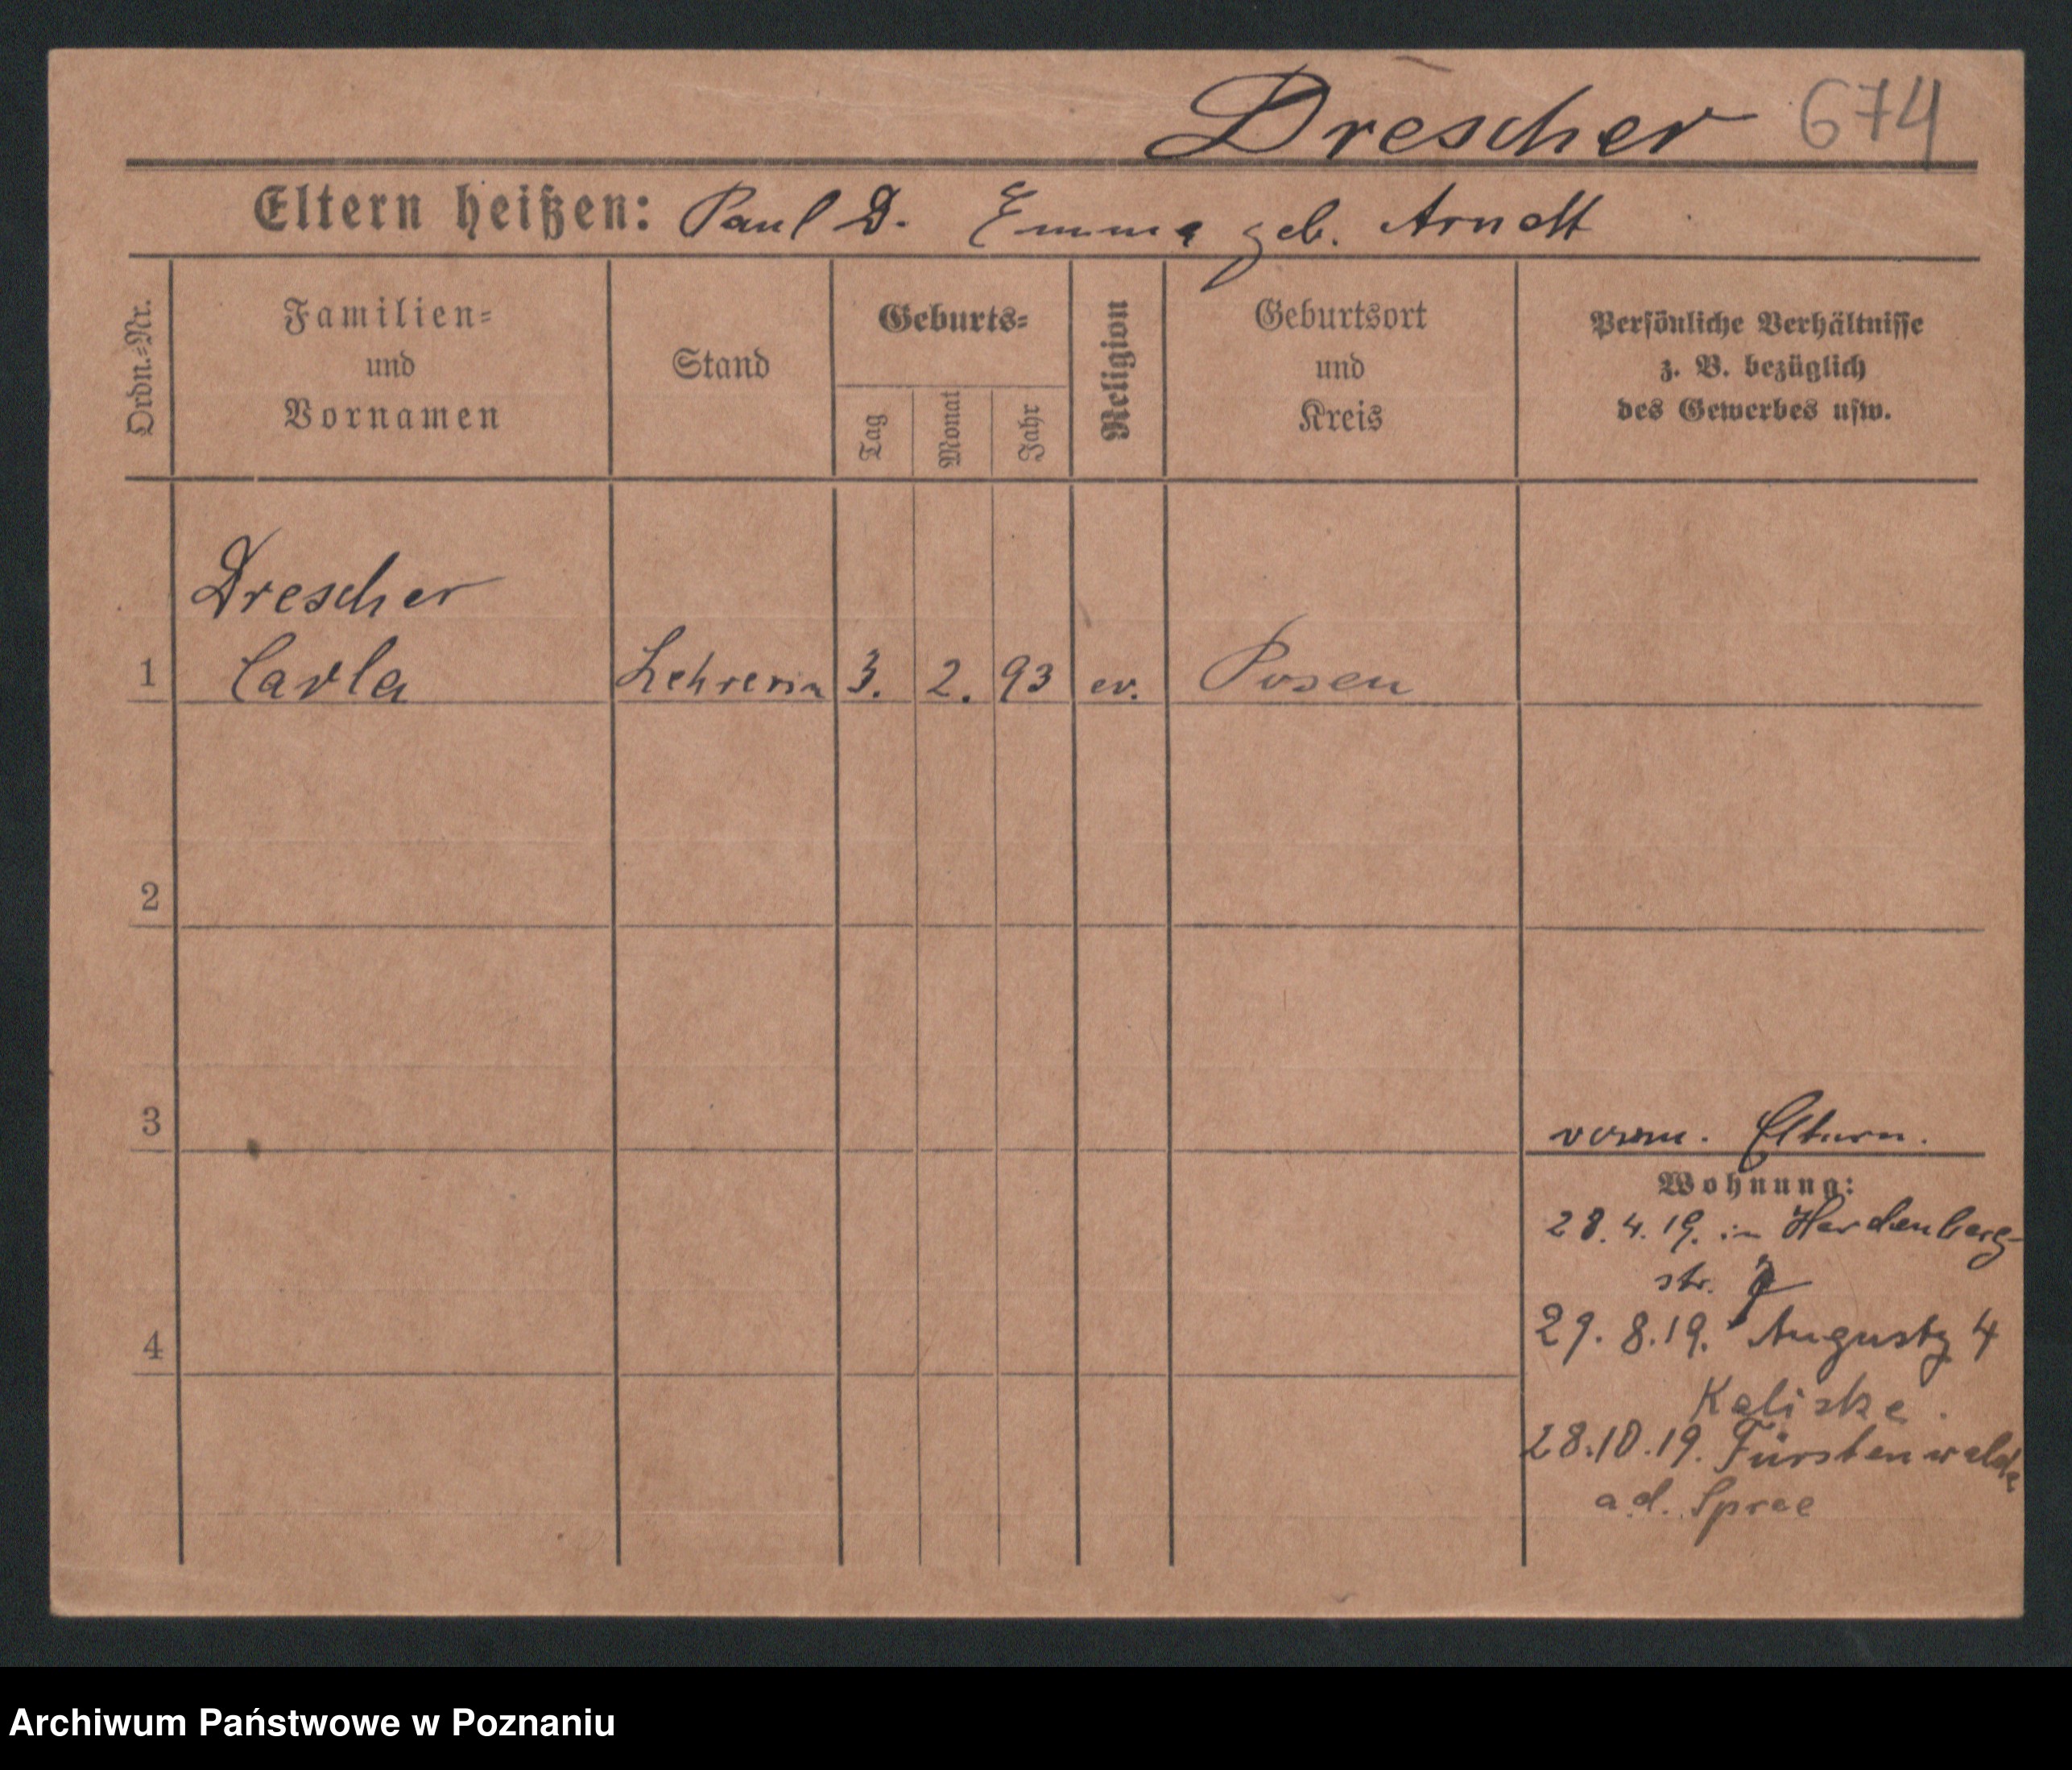 Drescher 674
Eltern heißen: Paul D. Emma geb. Arndt
Ordn.=Nr.
Familien=
und
Vornamen
Stand
Geburts=
Tag
Monat
Jahr
Religion
Geburtsort
und
Kreis
Persönliche Verhältnisse
z. B. bezüglich
des Gewerbes usw.
Drescher
1 Carla Lehrerin 3. 2. 93 ev. Posen
2
3
vorm. Eltern.
Wohnung:
28.4.19. in Hardenberg-
str.
29.8.19. Augusty 4
4
Kaliske.
28.10.19. Fürstenwalde
a.d. Spree
Archiwum Państwowe w Poznaniu